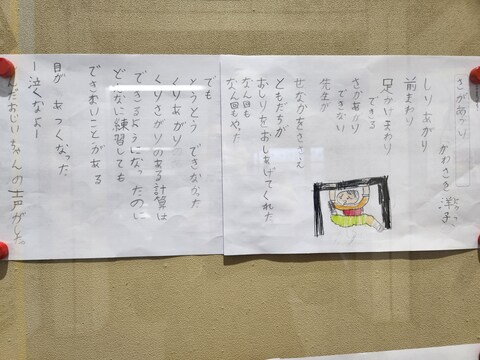 さかあがり
かわさき
しりあがり
前まわり
足かけまわり
できる
さかあがり
できない
先生が
せなかをささえ
ともだちが
おしりをおしあげてくれた
なん回も
なん回もやった
でも
とうとう できなかった
くりあがり
くりさがりのある計算は
できるようになったのに
どんなに練習しても
できないことがある
目が あつくなった
ー泣くなよー
んだおじいちゃんの声がした。